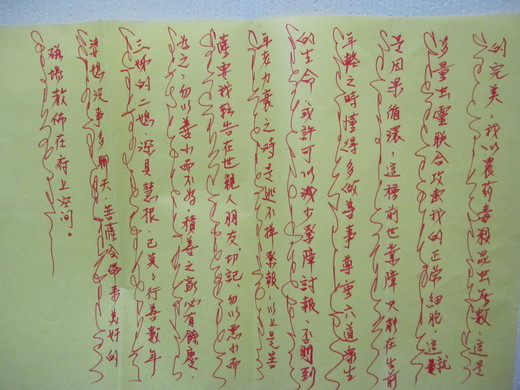 的完美,我以農葯毒殺昆虫無數,這是
多量虫靈联合攻击我的正常細胞,這就
是因果循環,這種前世業障只能在生前
年輕之時懂得多做善事尊重六道眾生
的生命,或許可以減少業障討報,否則到
年老力衰之時是逃不掉業報,以上是菩
薩要我轉告在世親人朋友,切記,勿以惡小而
為之,勿以善小而不為積善之家必有餘慶,
三姊的二媳,深具慧根,已 行善數年
婆媳沒事多聊天,菩薩會帶來美好的
磁場散佈在府上空间。